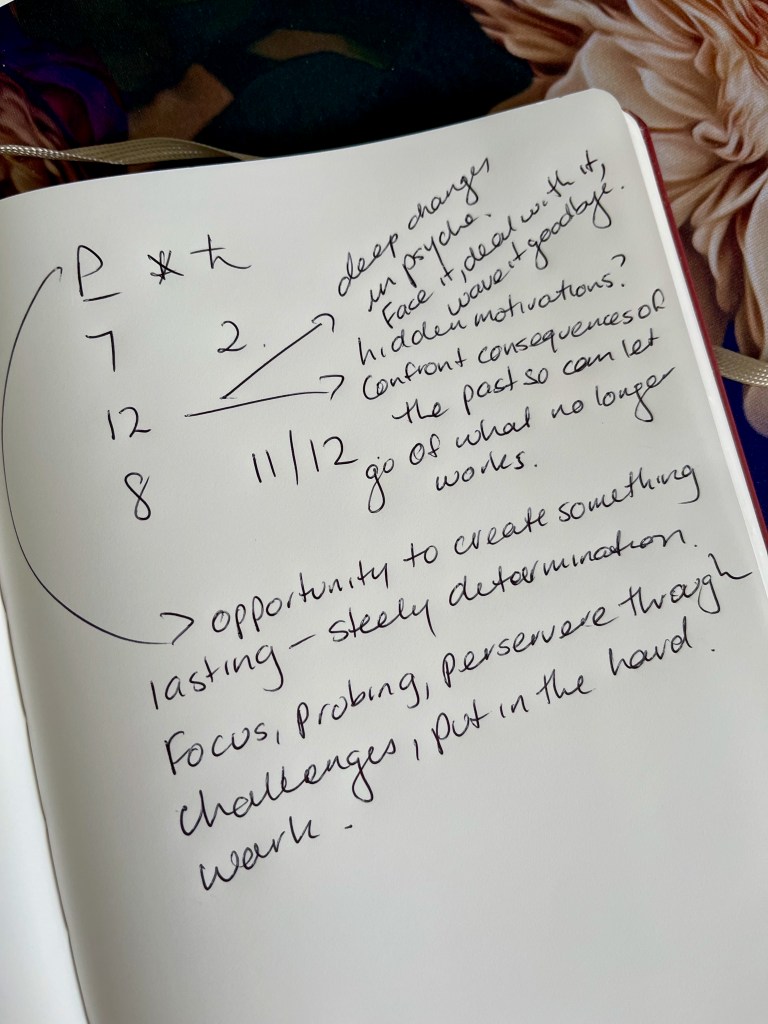 ♇ ⚹ ♄
7 2.
12
8 11/12
deep changes
in psyche.
Face it, deal with it,
wave it goodbye.
hidden motivations?
Confront consequences of
the past so can let
go of what no longer
works.
opportunity to create something
lasting – steely determination.
Focus, probing, perservere through
challenges, put in the hard
work.